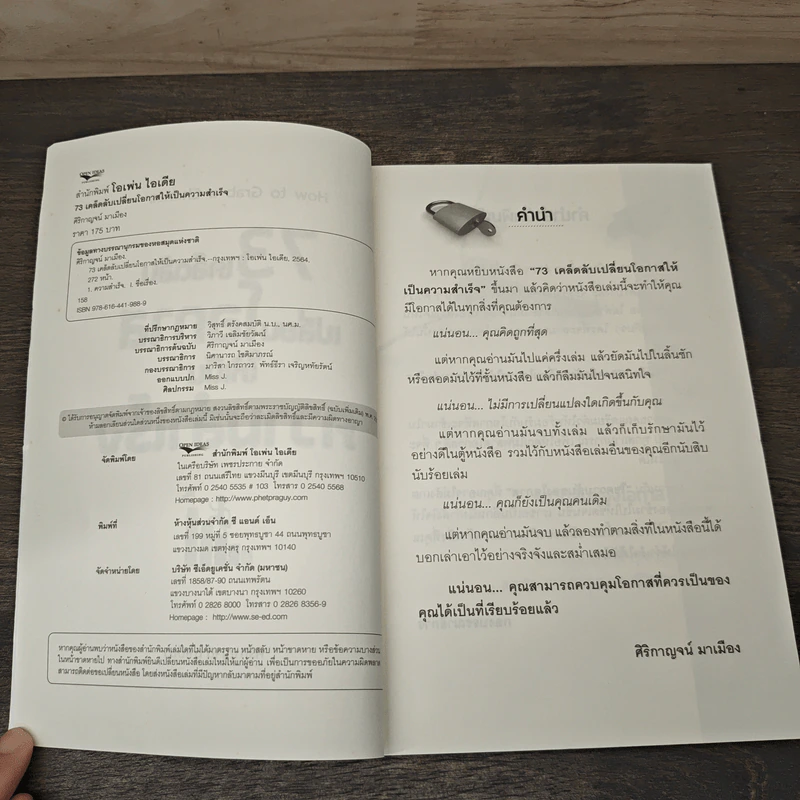 OPEN IDEAS
สำนักพิมพ์ โอเพ่น ไอเดีย
73 เคล็ดลับเปลี่ยนโอกาสให้เป็นความสำเร็จ
ศิริกาญจน์ มาเมือง
ราคา 175 บาท
ข้อมูลทางบรรณานุกรมของหอสมุดแห่งชาติ
ศิริกาญจน์ มาเมือง.
73 เคล็ดลับเปลี่ยนโอกาสให้เป็นความสำเร็จ.--กรุงเทพฯ : โอเพ่น ไอเดีย, 2564.
272 หน้า.
1. ความสำเร็จ. I. ชื่อเรื่อง.
158
ISBN 978-616-441-988-9
ที่ปรึกษากฎหมาย วิสุทธิ์ ตรังคสมบัติ น.บ., นศ.ม.
บรรณาธิการบริหาร วิภาวี เฉลิมชัยวัฒน์
บรรณาธิการต้นฉบับ ศิริกาญจน์ มาเมือง
บรรณาธิการ นิศานารถ โชติมาภรณ์
กองบรรณาธิการ มาริสา ไกรถาวร พัทธ์ธีรา เจริญหทัยรัตน์
ออกแบบปก Miss J.
ศิลปกรรม Miss J.
© ได้รับการอนุญาตจัดพิมพ์จากเจ้าของลิขสิทธิ์ตามกฎหมาย สงวนลิขสิทธิ์ตามพระราชบัญญัติลิขสิทธิ์ (ฉบับเพิ่มเติม) พ.ศ.
ห้ามลอกเลียนส่วนใดส่วนหนึ่งของหนังสือเล่มนี้ มิเช่นนั้นจะถือว่าละเมิดลิขสิทธิ์และมีความผิดทางอาญา
OPEN IDEAS
จัดพิมพ์โดย สำนักพิมพ์ โอเพ่น ไอเดีย
ในเครือบริษัท เพชรประกาย จำกัด
เลขที่ 81 ถนนเสรีไทย แขวงมีนบุรี เขตมีนบุรี กรุงเทพฯ 10510
โทรศัพท์ 0 2540 5535 # 103 โทรสาร 0 2540 5568
Homepage : http://www.phetpraguy.com
พิมพ์ที่ ห้างหุ้นส่วนจำกัด ซี แอนด์ เอ็น
เลขที่ 199 หมู่ที่ 5 ซอยพุทธบูชา 44 ถนนพุทธบูชา
แขวงบางมด เขตทุ่งครุ กรุงเทพฯ 10140
จัดจำหน่ายโดย บริษัท ซีเอ็ดยูเคชั่น จำกัด (มหาชน)
เลขที่ 1858/87-90 ถนนเทพรัตน
แขวงบางนาใต้ เขตบางนา กรุงเทพฯ 10260
โทรศัพท์ 0 2826 8000 โทรสาร 0 2826 8356-9
Homepage : http://www.se-ed.com
หากคุณผู้อ่านพบว่าหนังสือของสำนักพิมพ์เล่มใดที่ไม่ได้มาตรฐาน หน้าสลับ หน้าขาดหาย หรือข้อความบางส่วน
ในหน้าขาดหายไป ทางสำนักพิมพ์ยินดีเปลี่ยนหนังสือเล่มใหม่ให้แก่ผู้อ่าน เพื่อเป็นการขออภัยในความผิดพลาด
สามารถติดต่อขอเปลี่ยนหนังสือ โดยส่งหนังสือเล่มที่มีปัญหากลับมาตามที่อยู่สำนักพิมพ์
คำนำ
หากคุณหยิบหนังสือ "73 เคล็ดลับเปลี่ยนโอกาสให้
เป็นความสำเร็จ" ขึ้นมา แล้วคิดว่าหนังสือเล่มนี้จะทำให้คุณ
มีโอกาสได้ในทุกสิ่งที่คุณต้องการ
แน่นอน... คุณคิดถูกที่สุด
แต่หากคุณอ่านมันไปแค่ครึ่งเล่ม แล้วยัดมันไปในลิ้นชัก
หรือสอดมันไว้ที่ชั้นหนังสือ แล้วก็ลืมมันไปจนสนิทใจ
แน่นอน... ไม่มีการเปลี่ยนแปลงใดเกิดขึ้นกับคุณ
แต่หากคุณอ่านมันจบทั้งเล่ม แล้วก็เก็บรักษามันไว้
อย่างดีในตู้หนังสือ รวมไว้กับหนังสือเล่มอื่นของคุณอีกนับสิบ
นับร้อยเล่ม
แน่นอน... คุณก็ยังเป็นคุณคนเดิม
แต่หากคุณอ่านมันจบ แล้วลองทำตามสิ่งที่ในหนังสือนี้ได้
บอกเล่าเอาไว้อย่างจริงจังและสม่ำเสมอ
แน่นอน... คุณสามารถควบคุมโอกาสที่ควรเป็นของ
คุณได้เป็นที่เรียบร้อยแล้ว
ศิริกาญจน์ มาเมือง